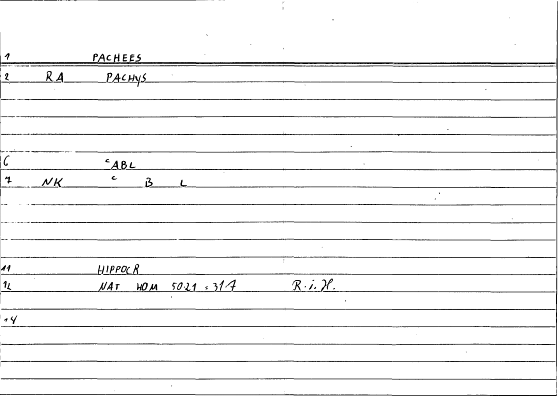 1 PACHEES
2 RA PACHYS
6 ᶜABL
7 NK ᶜ B L
11 HIPPOCR
12 NAT HOM 5021 = 317 R.i.H.
14